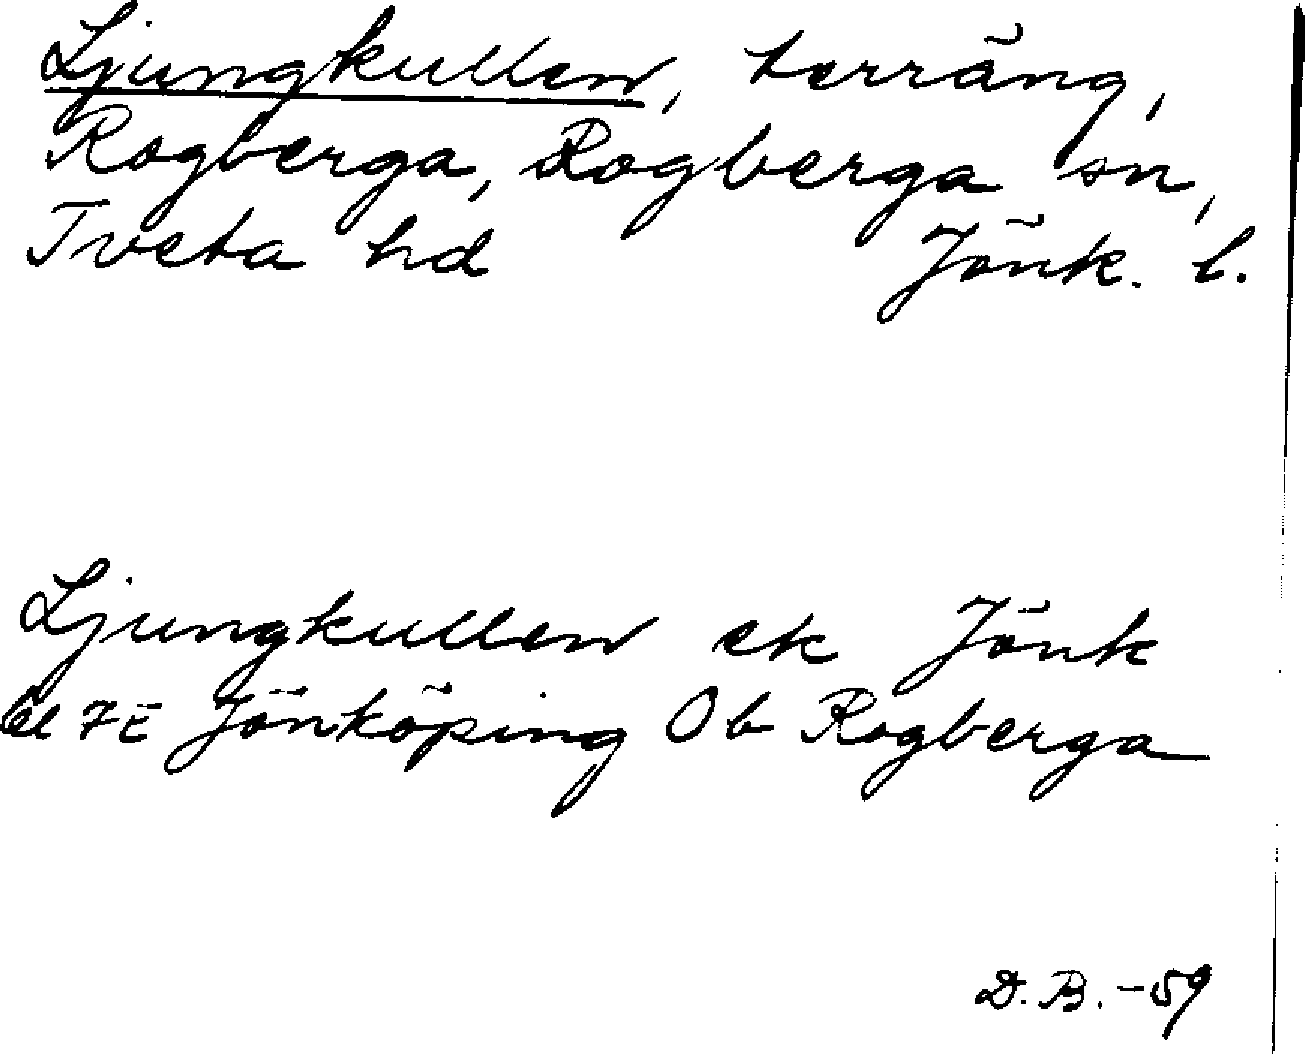 Ljungkullen, terräng,
Rogberga, Rogberga sn,
Tveta hd Jönk. l.
Ljungkullen ek Jönk
bl 7E Jönköping Ob Rogberga
D. B. -59